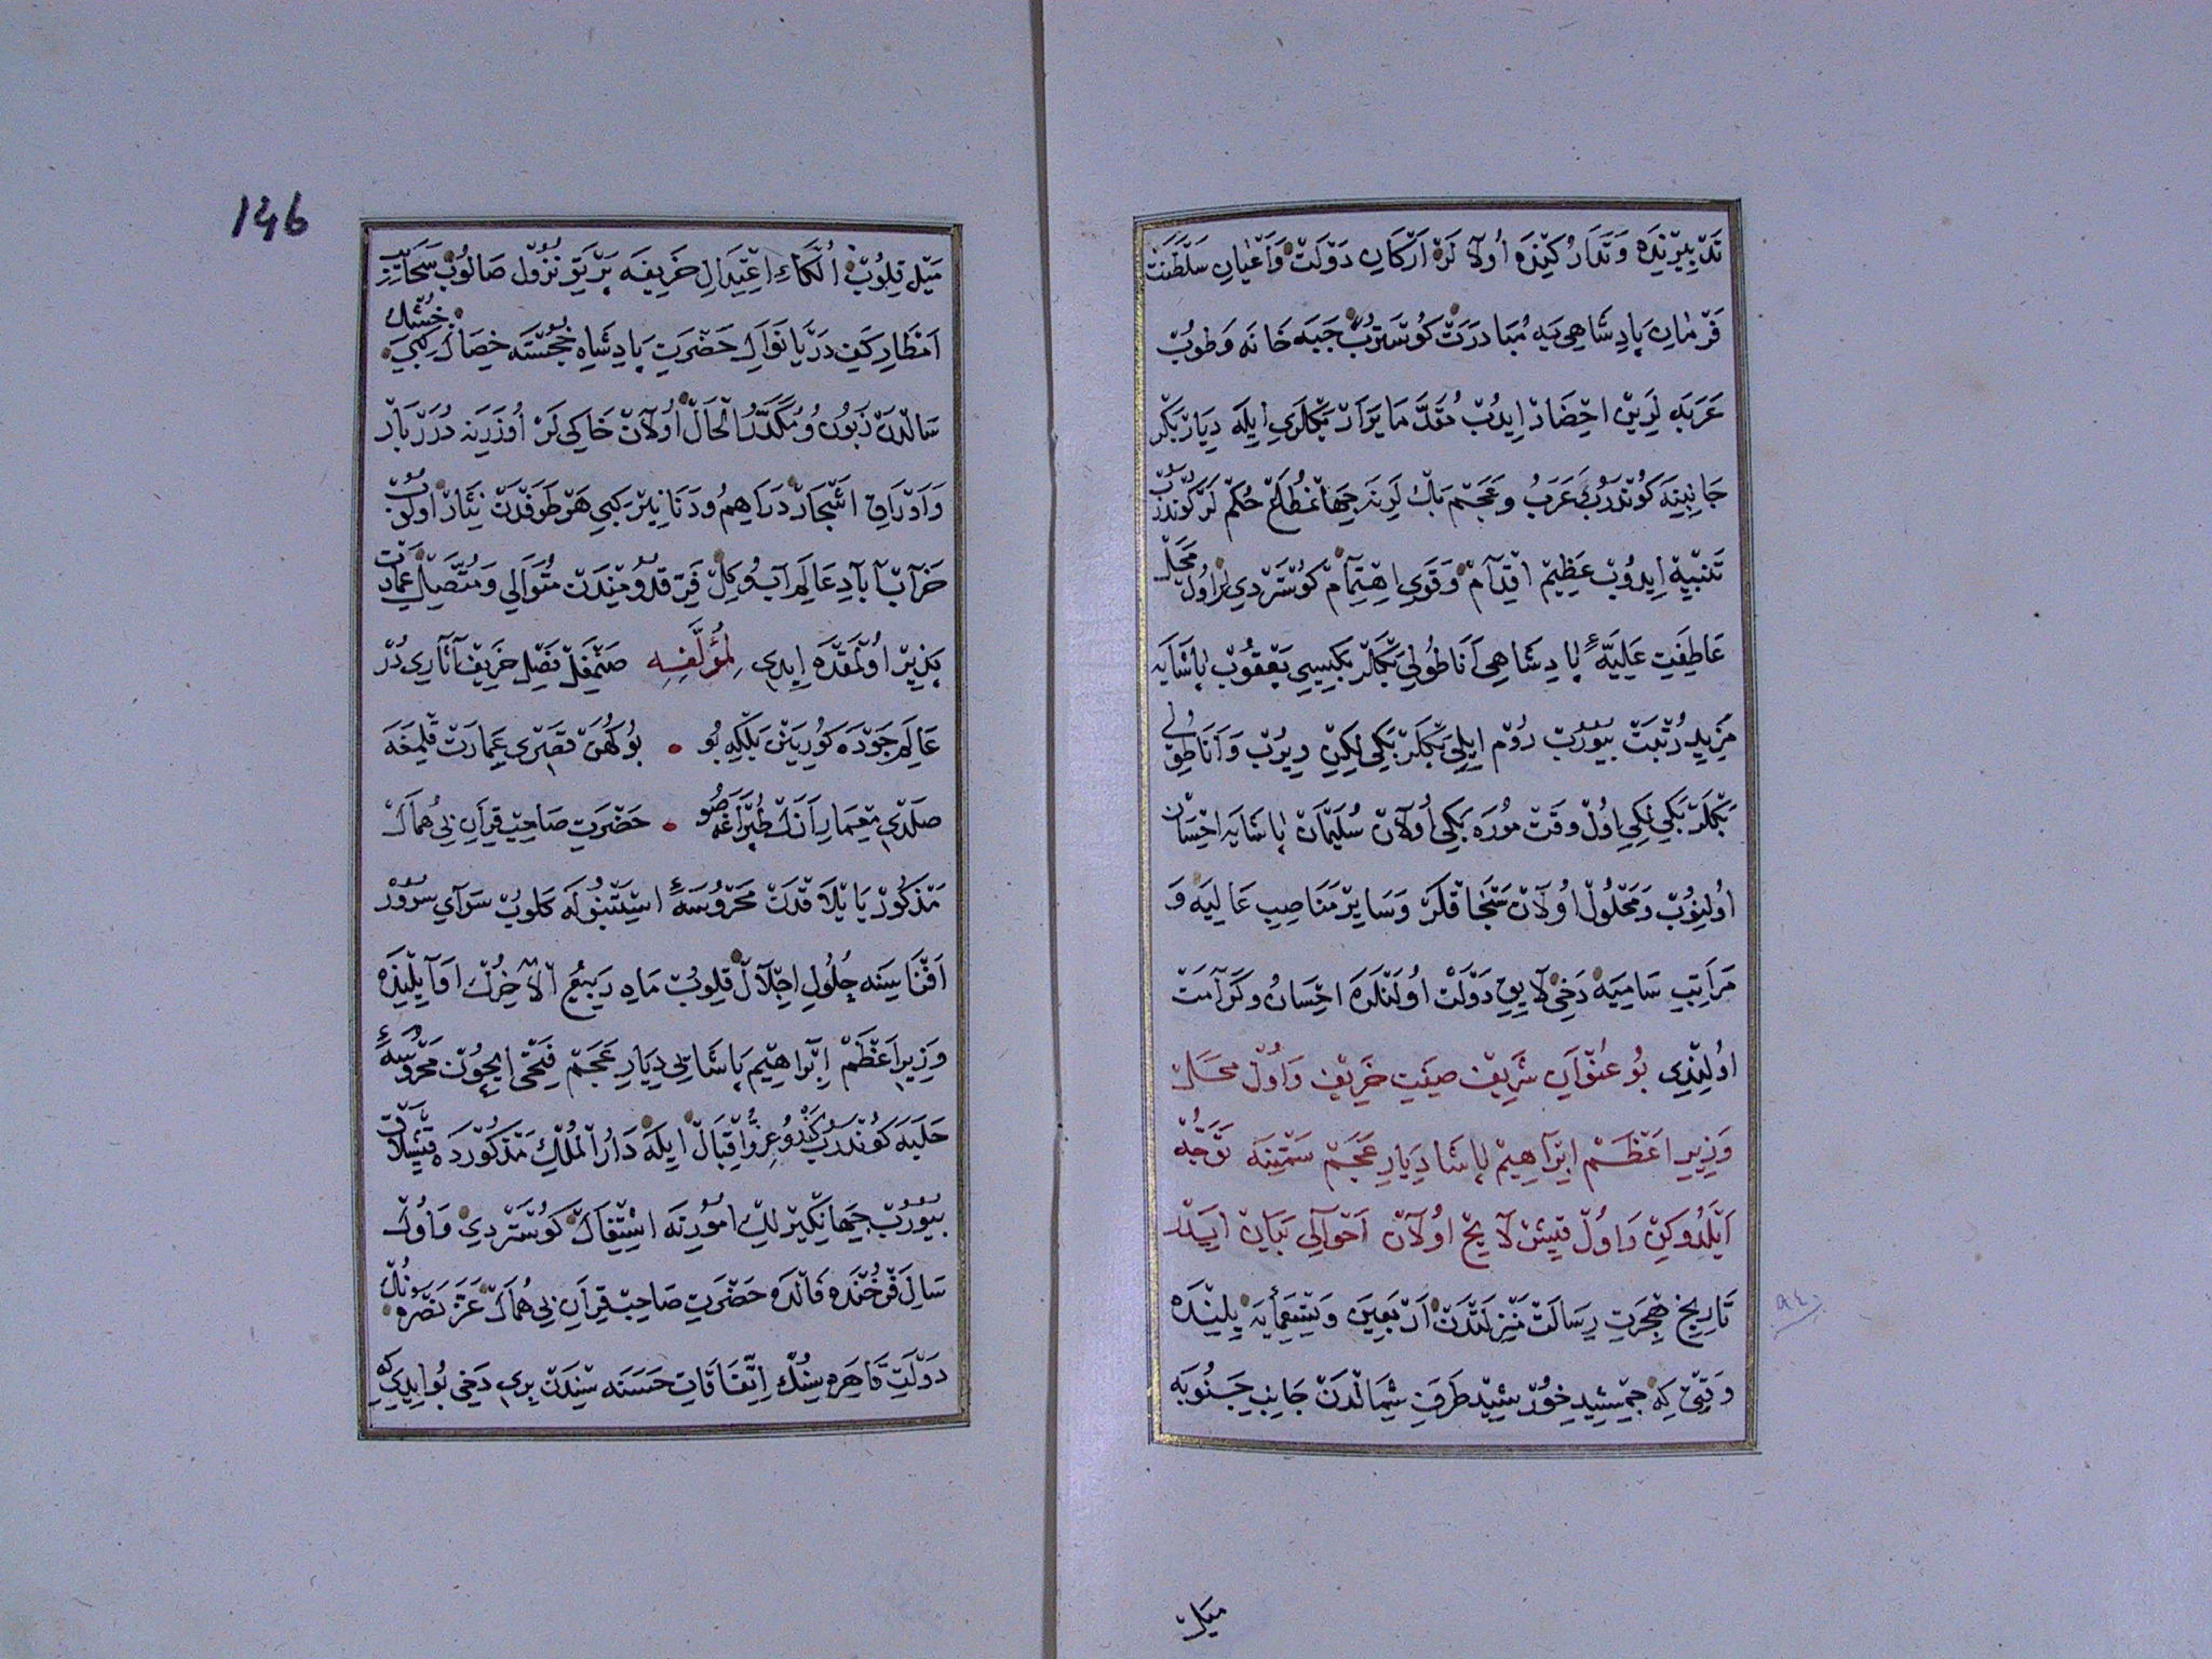 تدبيرنده وتداركينده اولالر اركان دولت واعيان سلطنت
فرمان پادشاهی يه مبادرت كوستروب جبه خانه وطوب
عربه لرين احضار ايدوب مقدما يرار بكلری ايله ديار بكر
جانبينه كوندروب عرب وعجم بك لرينه جهانمطاع حكم لر كوندروب
تنبيه ايدوب عظيم اقدام وقوی اهتمام كوستردی لر اول محل
عاطفت عليهٔ پادشاهی اناطولی بكلر بكيسی يعقوب پاشايه
مزيد رتبت بيوروب روم ايلی بكلر بكی لكين ويروب واناطولی
بكلر بكی لكی اول وقت موره بكی اولان سليمان پاشايه احسان
اولنوب ومحلول اولان سنجاقلر وساير مناصب عاليه و
مراتب ساميه دخی لايق دولت اولنلره احسان وكرامت
اولندی بو عنوان شريف صيت خريف واول محل
وزير اعظم ابراهيم پاشا ديار عجم سمتينه توجه
ايلدوكن واول قيش لايح اولان احوالی بيان ايدر
تاريخ هجرت رسالت منزلتدن اربعين وتسعمايه يلينده
وقتی كه جمشيد خورشيد طرف شمالدن جانب جنوبه
ميل
146
ميل قلوب الكاء اعتدال خريفه بريق نزول صالوب سحاب
امطار كف دريا نوال حضرت پادشاه خجسته خصال كبی خشك
سالدن زبون ومكدر الحال اولان خاكی لر اوزرينه درربار
واوراق اشجار دراهم ودنانير كبی هر طرفدن نثار اولوب
خراب آباد عالم آب وكل فر قدومندن متوالی ومتصل عمارت
پذير اولمقده ايدی لمؤلفه صنمفل فصل خريف آثاری در
عالم جوده كوريش بلكه بو بو كهن قصری عمارت قلمغه
صلدی معمار انك طپراغه صو حضرت صاحب قران بی همال
مذكور يايلاقدن محروسهٔ استنبوله كلوب سرای سرور
افنا سينه جلول اجلال قلوب ماه ربيع الاخرك اوايلنده
وزير اعظم ابراهيم پاشا يی ديار عجم فتحی ايچون محروسهٔ
حلبه كوندروب كندو عز واقبال ايله دار الملك مذكورده قيشلاق
بيوروب جهانكيرلك امورنه اشتغال كوستردی واول
سال فرخنده فالده حضرت صاحب قران بی همال عز نصره نك
دولت قاهره سنك اتفاقات حسنه سندن بری دخی بو ايدی كه